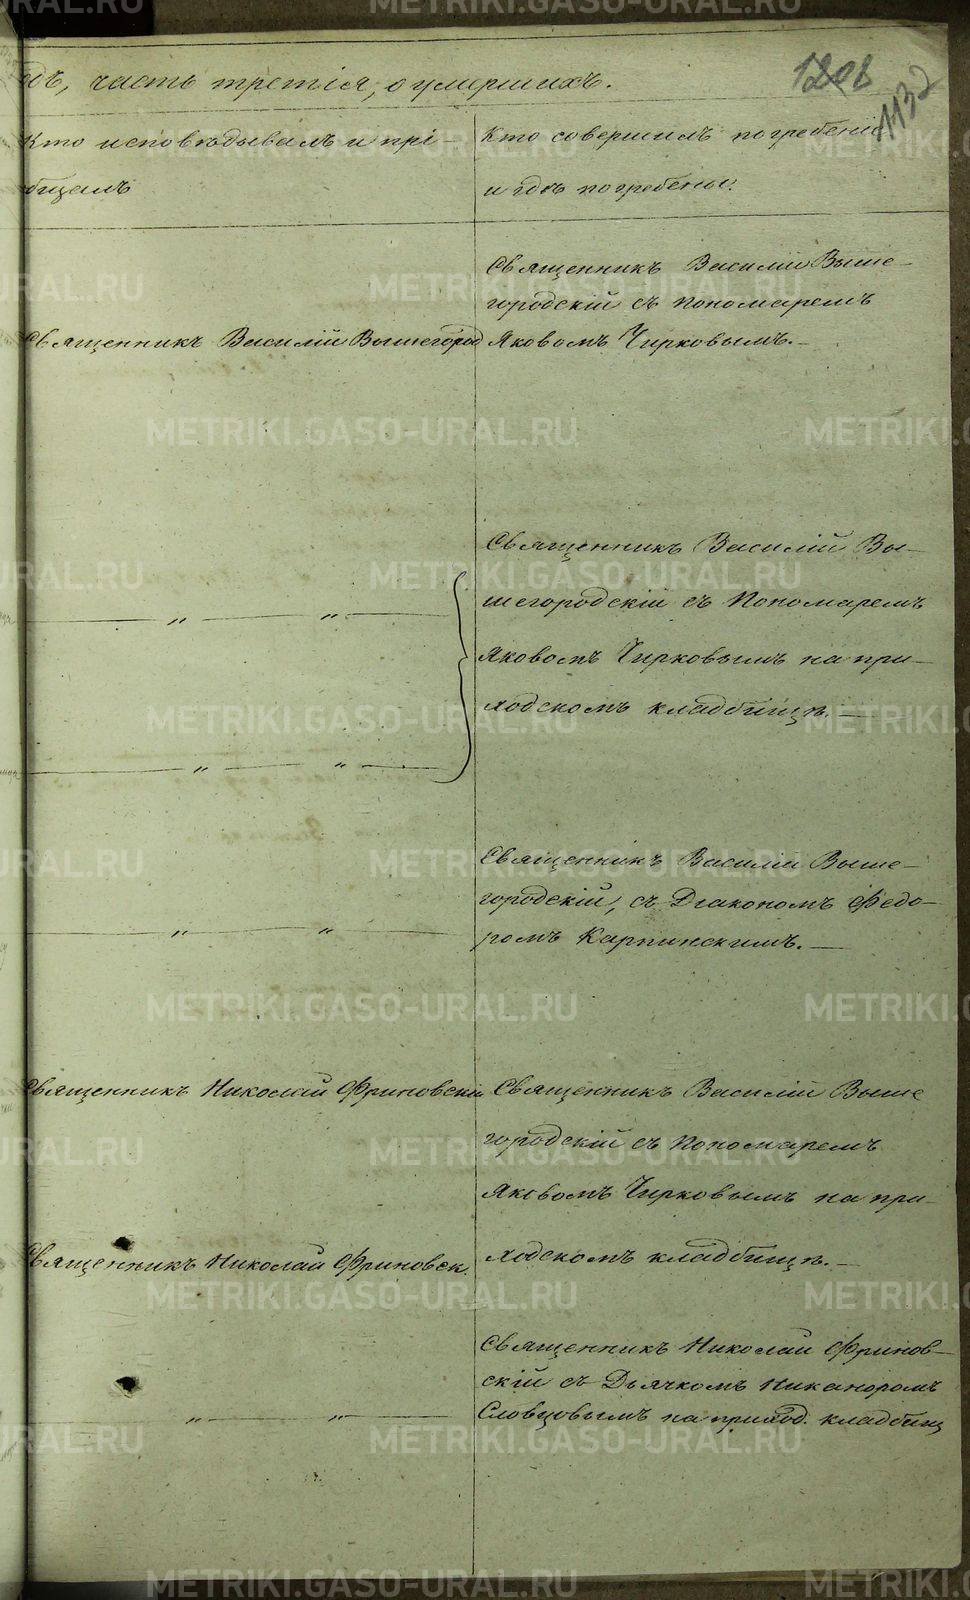 одъ, часть третія, о умершихъ.
1132
Кто исповѣдывалъ и прі-
общалъ
Кто совершилъ погребеніе
и гдѣ погребены.
Священникъ Василій Вышегород
Священникъ Василій Выше-
городскій съ Пономаремъ
Яковомъ Чирковымъ.-
Священникъ Василій Вы-
шегородскій съ Пономаремъ
Яковомъ Чирковымъ на при-
ходскомъ кладбищѣ.-
— „ — „ —
— „ — „ —
Священникъ Василій Выше-
городскій, съ Діакономъ Ѳедо-
ромъ Карпинскимъ.-
— „ — „ —
Священникъ Николай Фриновскій
Священникъ Василій Выше
городскій съ Пономаремъ
Яковомъ Чирковымъ на при-
ходскомъ кладбищѣ.-
Священникъ Николай Фриновск.
Священникъ Николай Фринов-
скій съ Дьячкомъ Никаноромъ
Словцовымъ на приход. кладбищ
— „ — „ —
METRIKI.GASO-URAL.RU